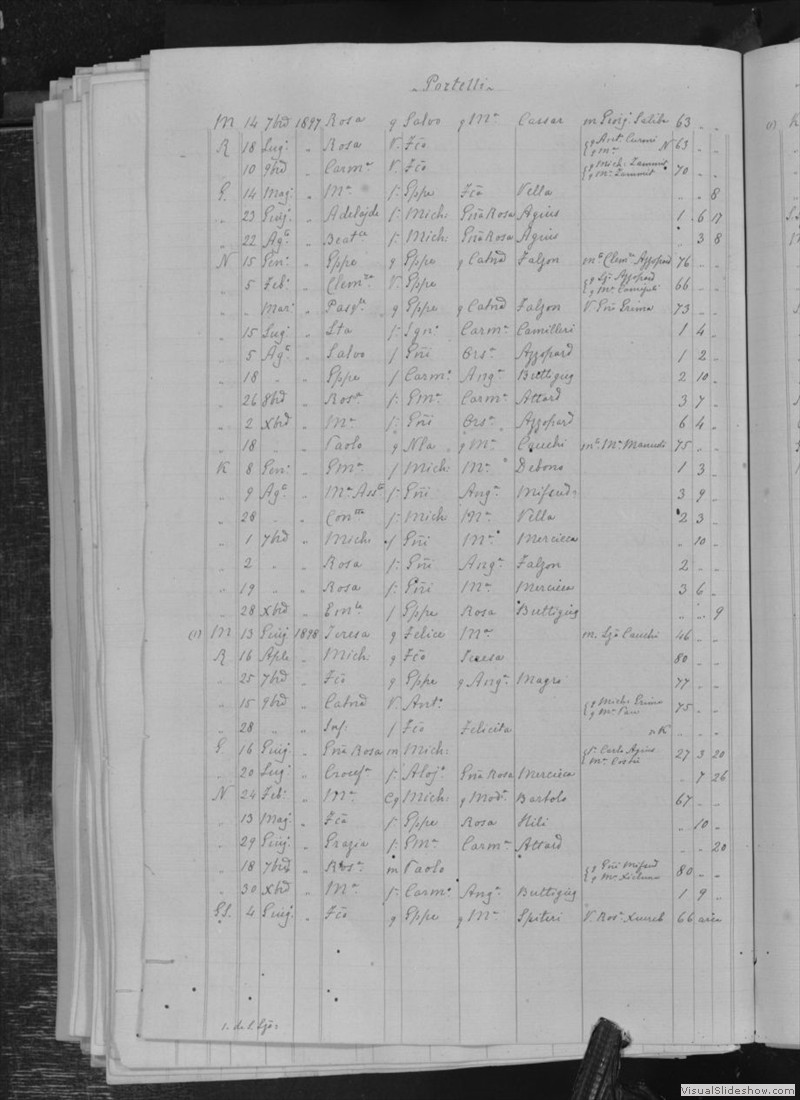 Portelli
M 14 7brd 1897 Rosa q Salvo q Ma Cassar m Giusj Saliba 63 " "
R 18 Lug: " Rosa V. Fco {q Ant. q Ma N 63 " "
" 10 9brd " Carma V. Fco {q Mich. Zammit q Ma Zammit 70 " "
G. 14 Mag: " Ma f: Gppe Fca Vella " " 8
" 23 Giug. " Adelajde f: Mich: Gña Rosa Agius 1 6 17
" 22 Agto " Beatce f: Mich: Gña Rosa Agius " 3 8
N 15 Gen: " Gppe q Gppe q Catnd Falzon me Clema Azzopard 76 " "
" 5 Feb: " Clemza V. Gppe {q Azzopard q Ma 66 " "
" " Mar: " Pasqle q Gppe q Catnd Falzon V Gni Grima 73 " "
" 15 Lug: " Sta f: Igno: Carma Camilleri 1 4 "
" 5 Agto " Salvo f Gñi Orsa Azzopard 1 2 "
" 18 " " Gppe f Carmo Anga Buttigieg 2 10 "
" 26 8brd " Rosa f: Gma Carma Attard 3 7 "
" 2 Xbrd " Ma f: Gñi Orsa Azzopard 6 4 "
" 18 " " Paolo q Nla q Ma Cauchi me Ma 75 " "
K 8 Gen: " Gma f Mich: Ma Debono 1 3 "
" 9 Agto " Ma Assta f: Gñi Anga Mifsud 3 9 "
" 28 " " Conne f: Mich: Ma Vella 2 3 "
" 1 7brd " Mich: f Gñi Ma Mercieca " 10 "
" 2 " " Rosa f: Gñi Anga Falzon 2 " "
" 19 " " Rosa f: Gñi Ma Mercieca 3 6 "
" 28 Xbrd " Emla f Gppe Rosa Buttigieg " " 9
(1) M 13 Giug 1898 Teresa q Felice Ma m. Cauchi 46 " "
R 16 Aple " Mich: q Fco Teresa 80 " "
" 25 7brd " Fco q Gppe q Anga Magro 77 " "
" 15 9brd " Catnd V. Ant: {q Mich: Grima q Ma 75 " "
" 28 " " Inf: f Fco Felicita " K " " "
G 16 Giug: " Gña Rosa m Mich: {V. Carlo Agius Ma 27 3 20
" 20 Lug " Crocefa f: Aloja Gña Rosa Mercieca " 7 26
N 24 Feb: " Ma Cg Mich: q Moda Bartolo 67 " "
" 13 Mag: " Fca f: Gppe Rosa Hili " 10 "
" 29 Giug: " Grazia f: Gma Carma Attard " " 20
" 18 7brd " Rosa m Paolo {q Gñi Mifsud q Ma 80 " "
" 30 Xbrd " Ma f: Carmo Anga Buttigieg 1 9 "
GS. 4 Giug: " Fco q Gppe q Ma Spiteri V Rosa Xuereb 66 circa
VisualSlideshow.com